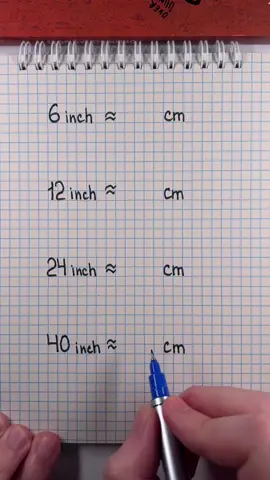 6 inch ≈ cm
12 inch ≈ cm
24 inch ≈ cm
40 inch ≈ cm